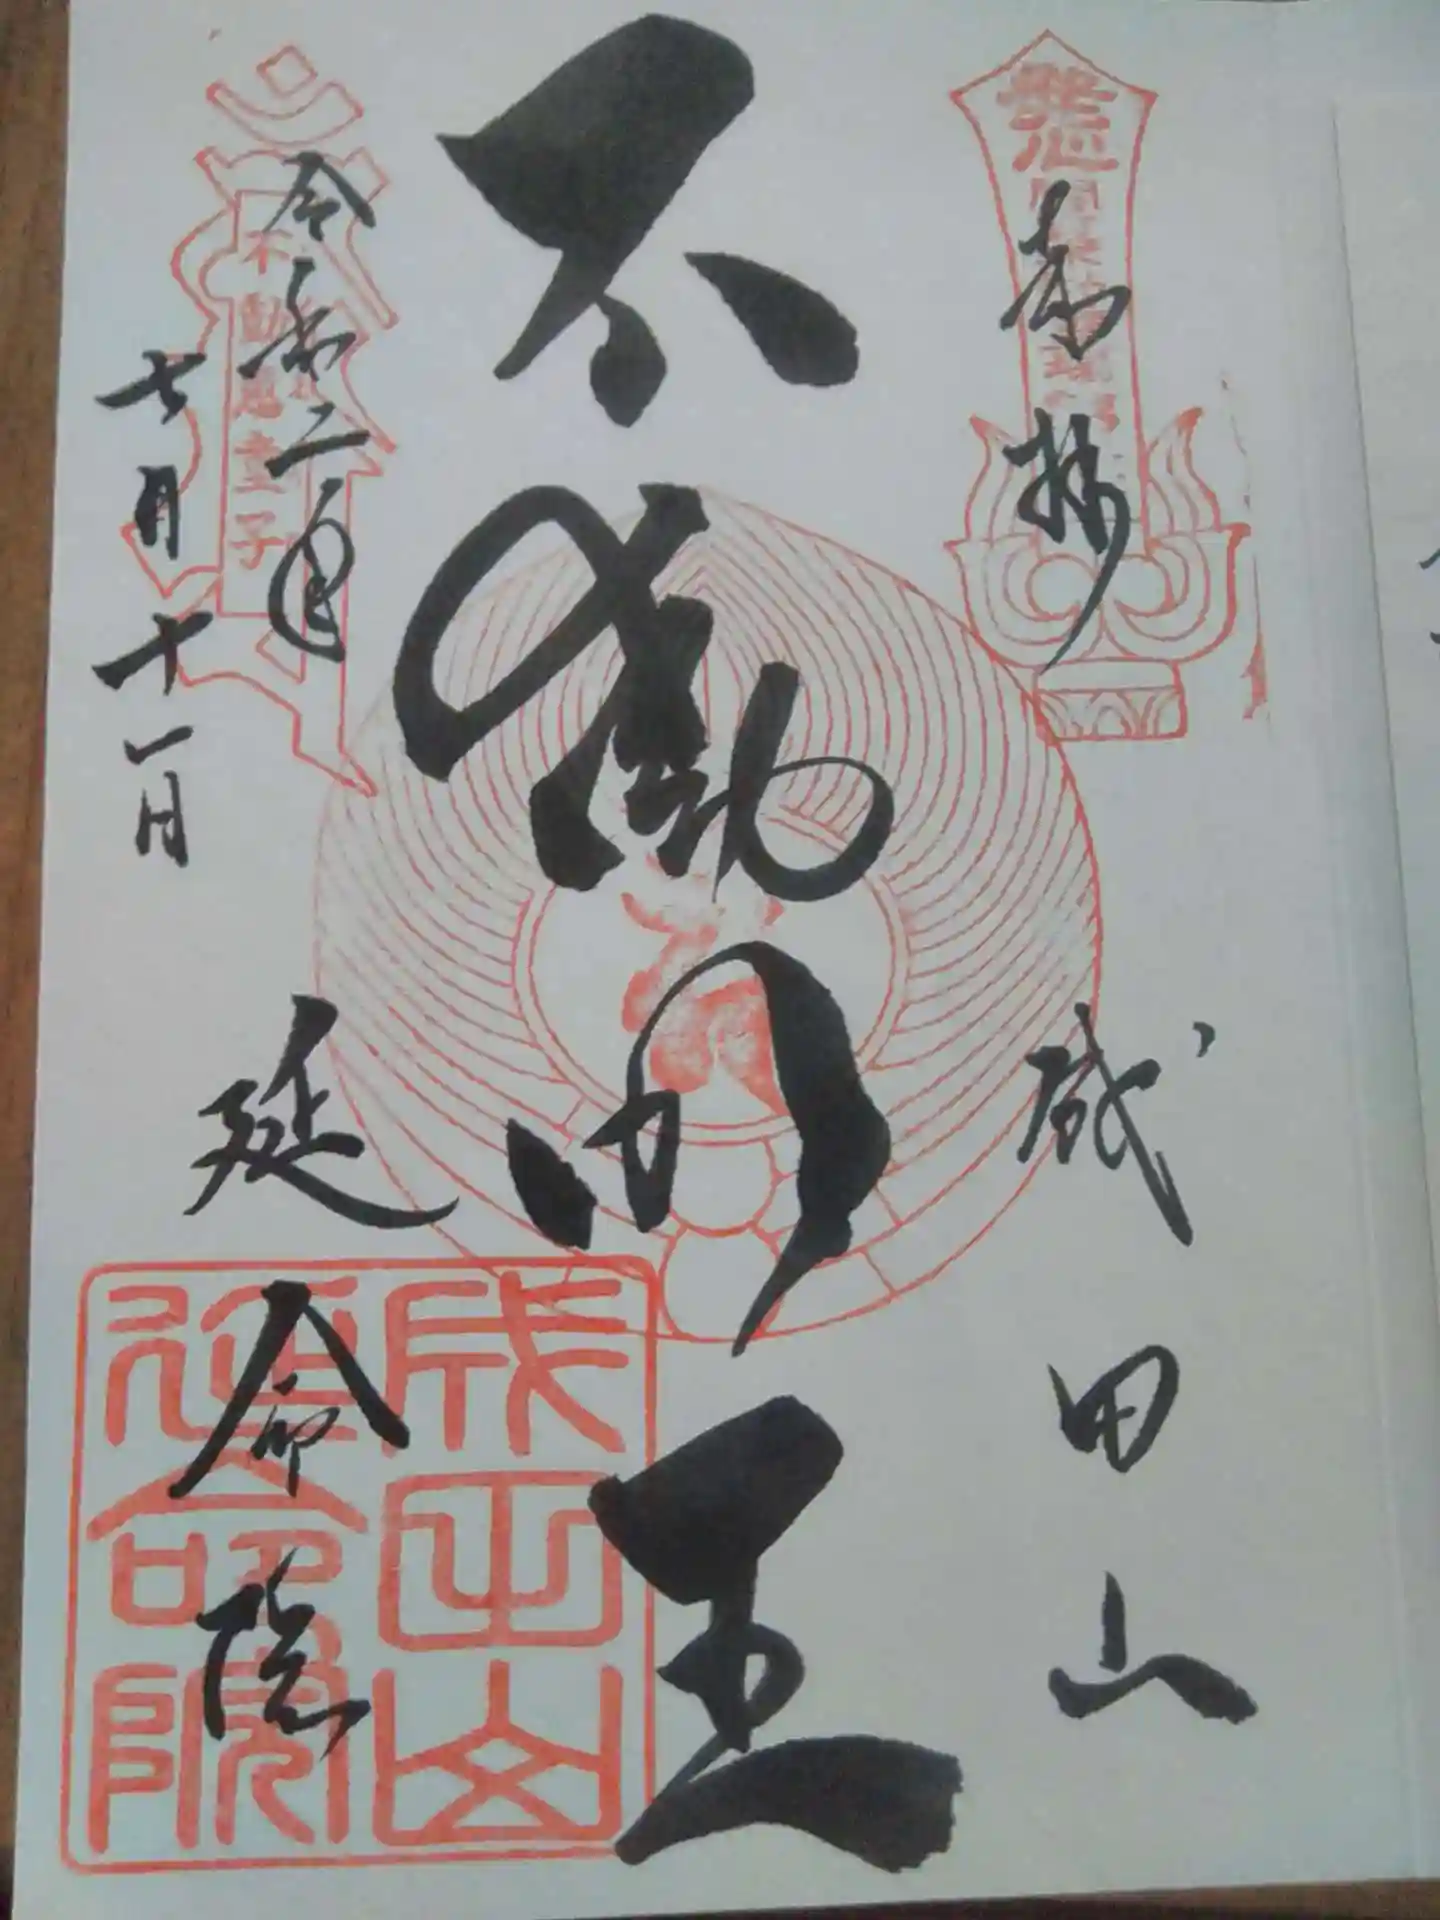 奉拝
成田山
不動明王
令和二年
七月十一日
延命院
発心
不動恵童子
成田山
延命院